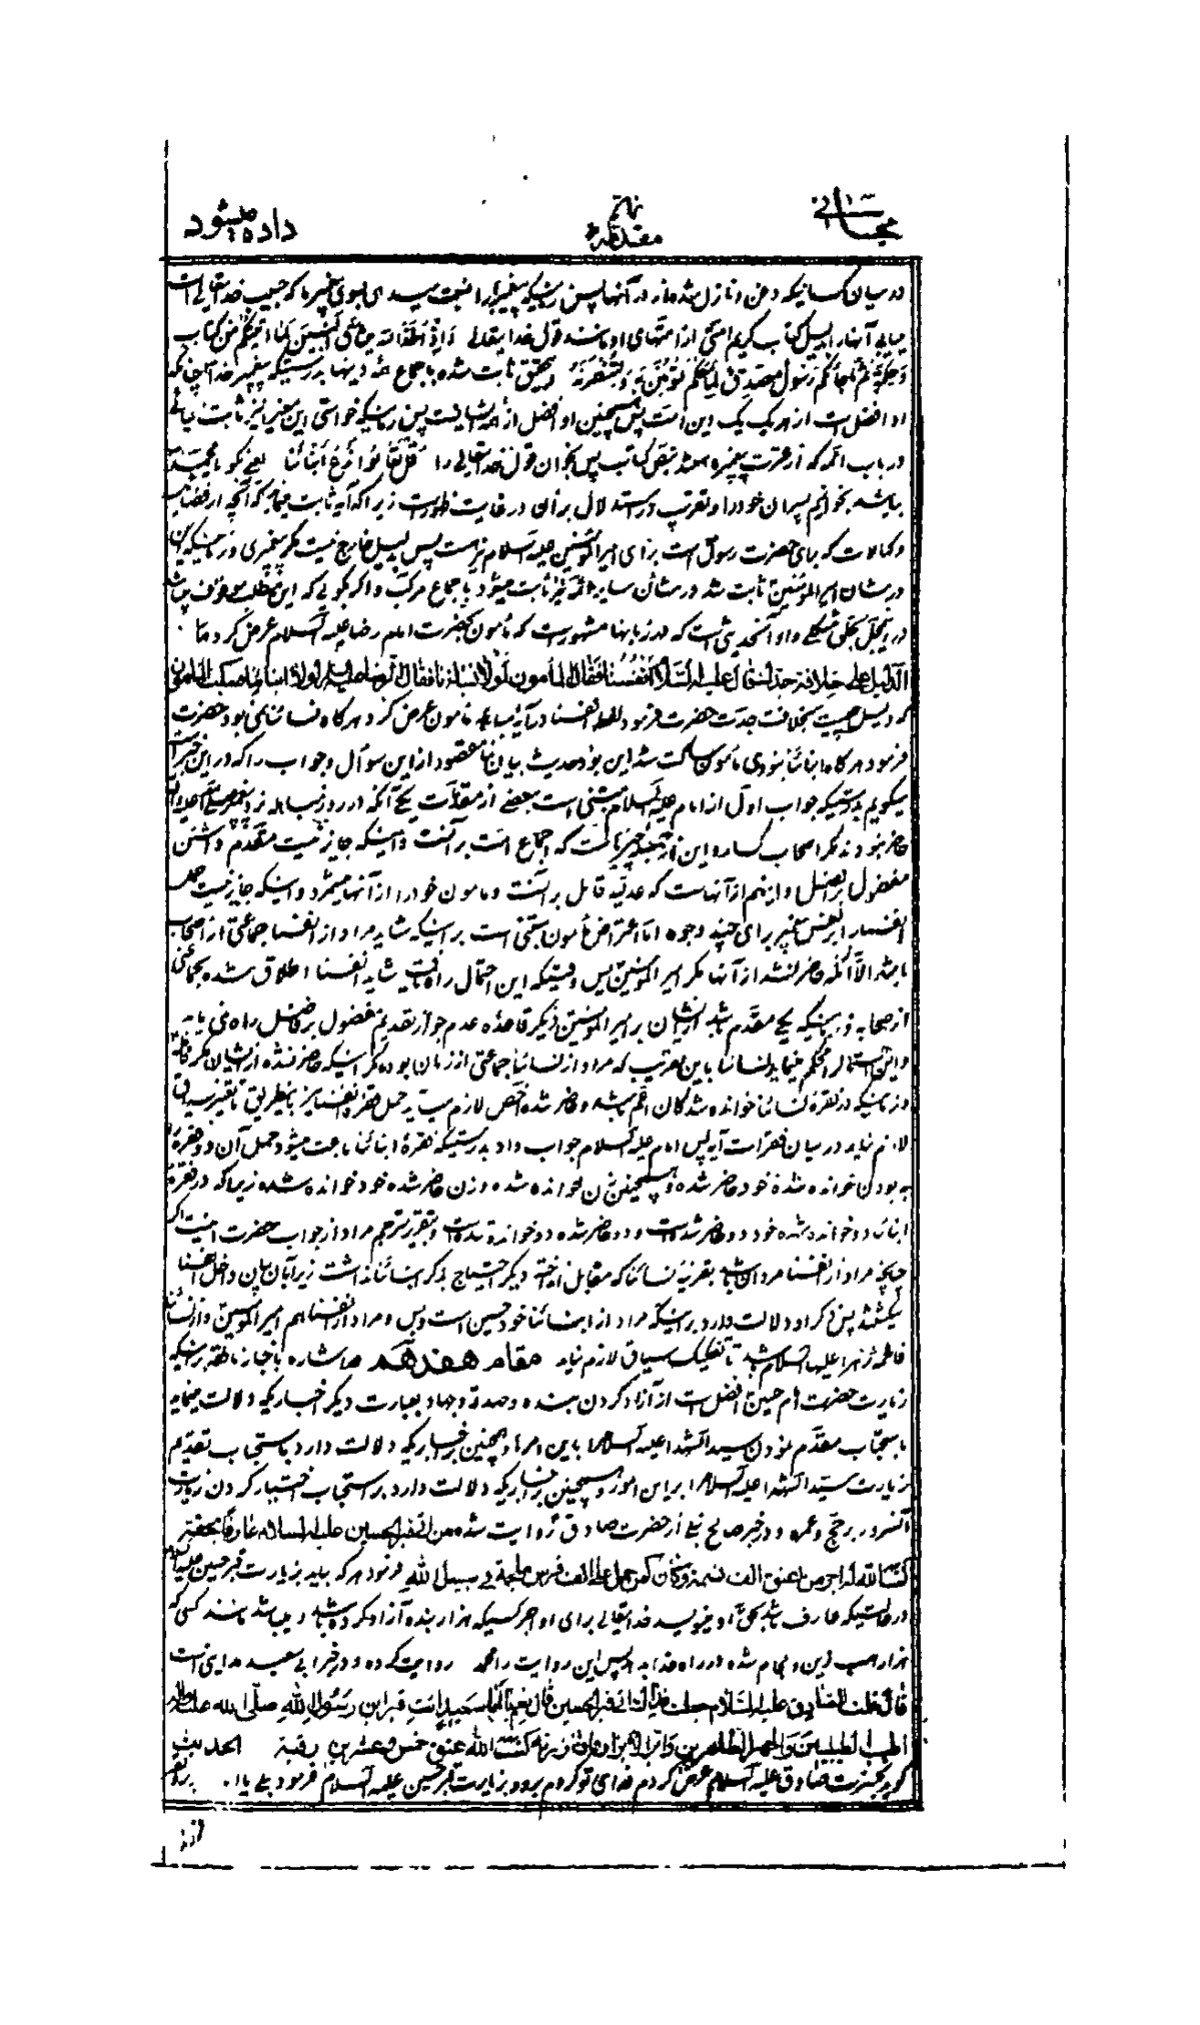 مقدمه
داده میشود
در میان کسانیکه و من و نازل شده در آنها پس زمانیکه پیغمبر را نسبت میدهی بسوی پیغمبر ما که حبیب خدایتعالی است
بیابی آنها را بدلیل کتاب کریم امتی از امتهای او مانند قول خدایتعالی وَاِذْ اَخَذَ اللّهُ میثاقَ النَّبِیّینَ لَما آتَیْتُکُمْ مِنْ کِتاب
وَحِکْمَةٍ ثُمَّ جائَکُمْ رَسُولٌ مُصَدِّقٌ لِما مَعَکُمْ لَتُؤْمِنُنَّ بِه وَلَتَنْصُرُنَّهُ و بتحقیق ثابت شده باجماع بدرستیکه پیغمبر خدا چنانکه
او افضل است از هر یک یک دین است پس همچنین او افضل از همه ایشان است پس زمانیکه خواستی این معنی را نیز ثابت نمائی
در باب ائمه که از عترت پیغمبرند بنص کتاب پس بخوان قول خدایتعالی را قُلْ تَعالَوْا نَدْعُ اَبْنائَنا یعنی بگو یا محمد
بیائید بخوانیم پسران خود را و تقریب و استدلال بر آن در غایت ظهور است زیرا که آیه ثابت مینماید که آنچه از فضایل
و کمالات که برای حضرت رسول است برای امیر المؤمنین علیه السلام نیز هست پس بدلیل خارج نیست مگر پیغمبری و زمانیکه این
در شان امیر المؤمنین ثابت شد در شان سایر ائمه نیز ثابت میشود باجماع مرکب و اگر بگوئی که این مطلب موقوف میباشد
در زبانها مشهور است که مامون بحضرت امام رضا علیه السلام عرض کرد ما
الدلیل علی خلافة جدک فقال علیه السلام اَنْفُسَنا فقال المأمون لولا نسائنا فقال الرضا علیه السلام لولا ابنائنا فسکت المأمون
که دلیل چیست بخلافت جدت حضرت فرمود لفظ انفسنا در آیه مباهله مامون عرض کرد هر گاه نسائنا نمی بود حضرت
فرمود هر گاه ابنائنا نبودی مامون ساکت شد این بود حدیث بیان مقصود از این سوال و جواب را که در این خبر است
میگوئیم بدرستیکه جواب اول از امام علیه السلام مبتنی است ببعضی از مقدمات یکی آنکه در روز مباهله نزد پیغمبر صلی الله علیه و آله
حاضر نبودند مگر اصحاب کساء و این از جمله چیزهائیست که اجماع امت بر آنست و اینکه جایز نیست مقدم داشتن
مفضول بر افضل و اینهم از آنهاست که عدلیه قائل بر آنست و مامون خود را از آنها میشمرد و اینکه جایز نیست حمل
انفسنا بر نفس پیغمبر برای چند وجوه اما اعتراض مامون مبتنی است بر اینکه شاید مراد از انفسنا جماعتی از اصحاب
باشد الا آنکه حاضر نشد از آنها مگر امیر المؤمنین پس وقتیکه این احتمال راه یافت شاید انفسنا اطلاق شده بجماعتی
از صحابه و اینکه یکی مقدم باشد از ایشان بر امیر المؤمنین دیگر قاعده عدم جواز تقدیم مفضول بر فاضل راه نمی یابد
و این احتمال را محکم مینماید لفظ نسائنا باین تقریب که مراد از نسائنا جماعتی از زنان بوده مگر اینکه حاضر نشده از ایشان مگر فاطمه
و زمانیکه در فقره نسائنا خوانده شدگان اعم باشد و حاضر شده اخص لازم میآید حمل فقره انفسنا نیز باینطریق تا تغییر سیاق
لازم نیاید در میان فقرات آیه پس امام علیه السلام جواب داد بدرستیکه فقره ابنائنا باعث میشود حمل آن دو فقره را
به بودن خوانده شده خود حاضر شده و همچنین زن خوانده شده و زن حاضر شده خود خوانده شده زیرا که در فقره
ابنائنا دو خوانده شده خود دو حاضر شده است و دو حاضر شده دو خوانده شده است و بتقریر مترجم مراد از جواب حضرت اینست اگر
چنانچه مراد از انفسنا مردان باشد بقرینه نسائنا که مقابل انداخته دیگر احتیاج بذکر ابنائنا نداشت زیرا آنان داخل انفسنا
میگشتند پس ذکر او دلالت دارد بر اینکه مراد از ابنائنا خود حسنین است و بس و مراد از انفسنا هم امیر المؤمنین و از نسائنا
فاطمه زهرا علیها السلام باشد تا تفکیک سیاق لازم نیاید مقام هفدهم در اشاره باخبار ناطقه بر اینکه
زیارت حضرت امام حسین افضل است از آزاد کردن بنده و صدقه و جهاد بعبارت دیگر اخباریکه دلالت مینماید
باستحباب مقدم نمودن سید الشهدا علیه السلام را باین امر و همچنین بر اخباریکه دلالت دارد باستحباب تقدیم
زیارت سید الشهدا علیه السلام را بر این امور و همچنین بر اخباریکه دلالت دارد بر استحباب اختیار کردن زیارت
آنسرور بر حج و عمره و در خبر صالح نیلی از حضرت صادق روایت شده من اتی قبر الحسین علیه السلام عارفاً بحقه
کتب الله له اجر من اعتق الف نسمة و کان کمن حمل علی الف فرس ملجمة فی سبیل الله فرمود هر که بیاید بزیارت قبر حسین علیه السلام
در حالتیکه عارف باشد بحق او مینویسد خدایتعالی برای او اجر کسیکه هزار بنده آزاد کرده باشد و میباشد مانند کسی که
هزار اسب زین و لجام شده در راه خدا بدهد پس این روایت را روایت کرده و در خبر ابی سعید مداینی است
قال قلت للصادق علیه السلام جعلت فداک ائت قبر الحسین قال نعم یا ابا سعید ائت قبر ابن رسول الله صلی الله علیه و آله
اطیب الطیبین و اطهر الطاهرین و ابر الابرار و ان زرته کتب الله عتق خمس و عشرین رقبة الحدیث
گوید بحضرت صادق علیه السلام عرض کردم فدای تو گردم بروم بزیارت قبر حسین علیه السلام فرمود بلی یا